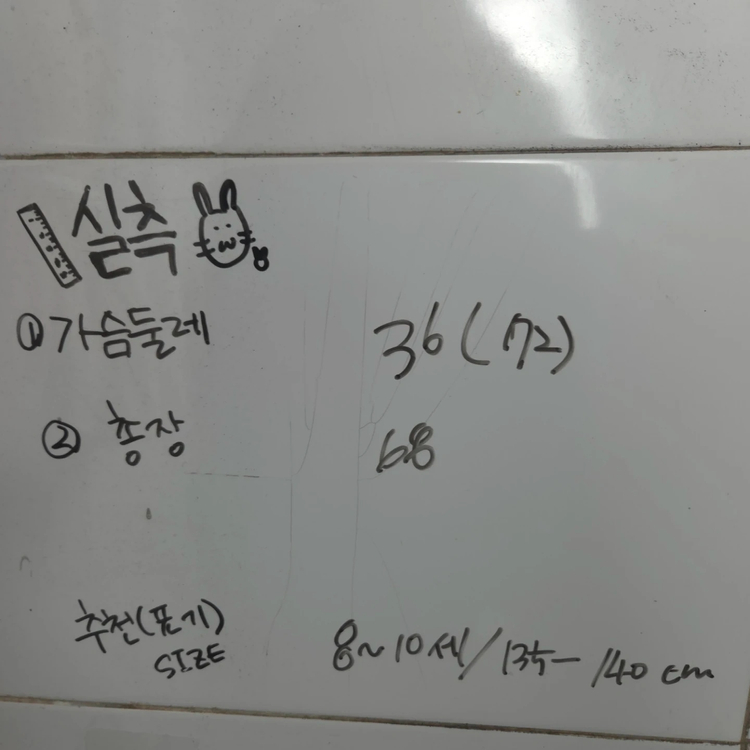 실측
① 가슴둘레 36(72)
② 총장 68
추천(표기) 8~10세/135-140cm
SIZE